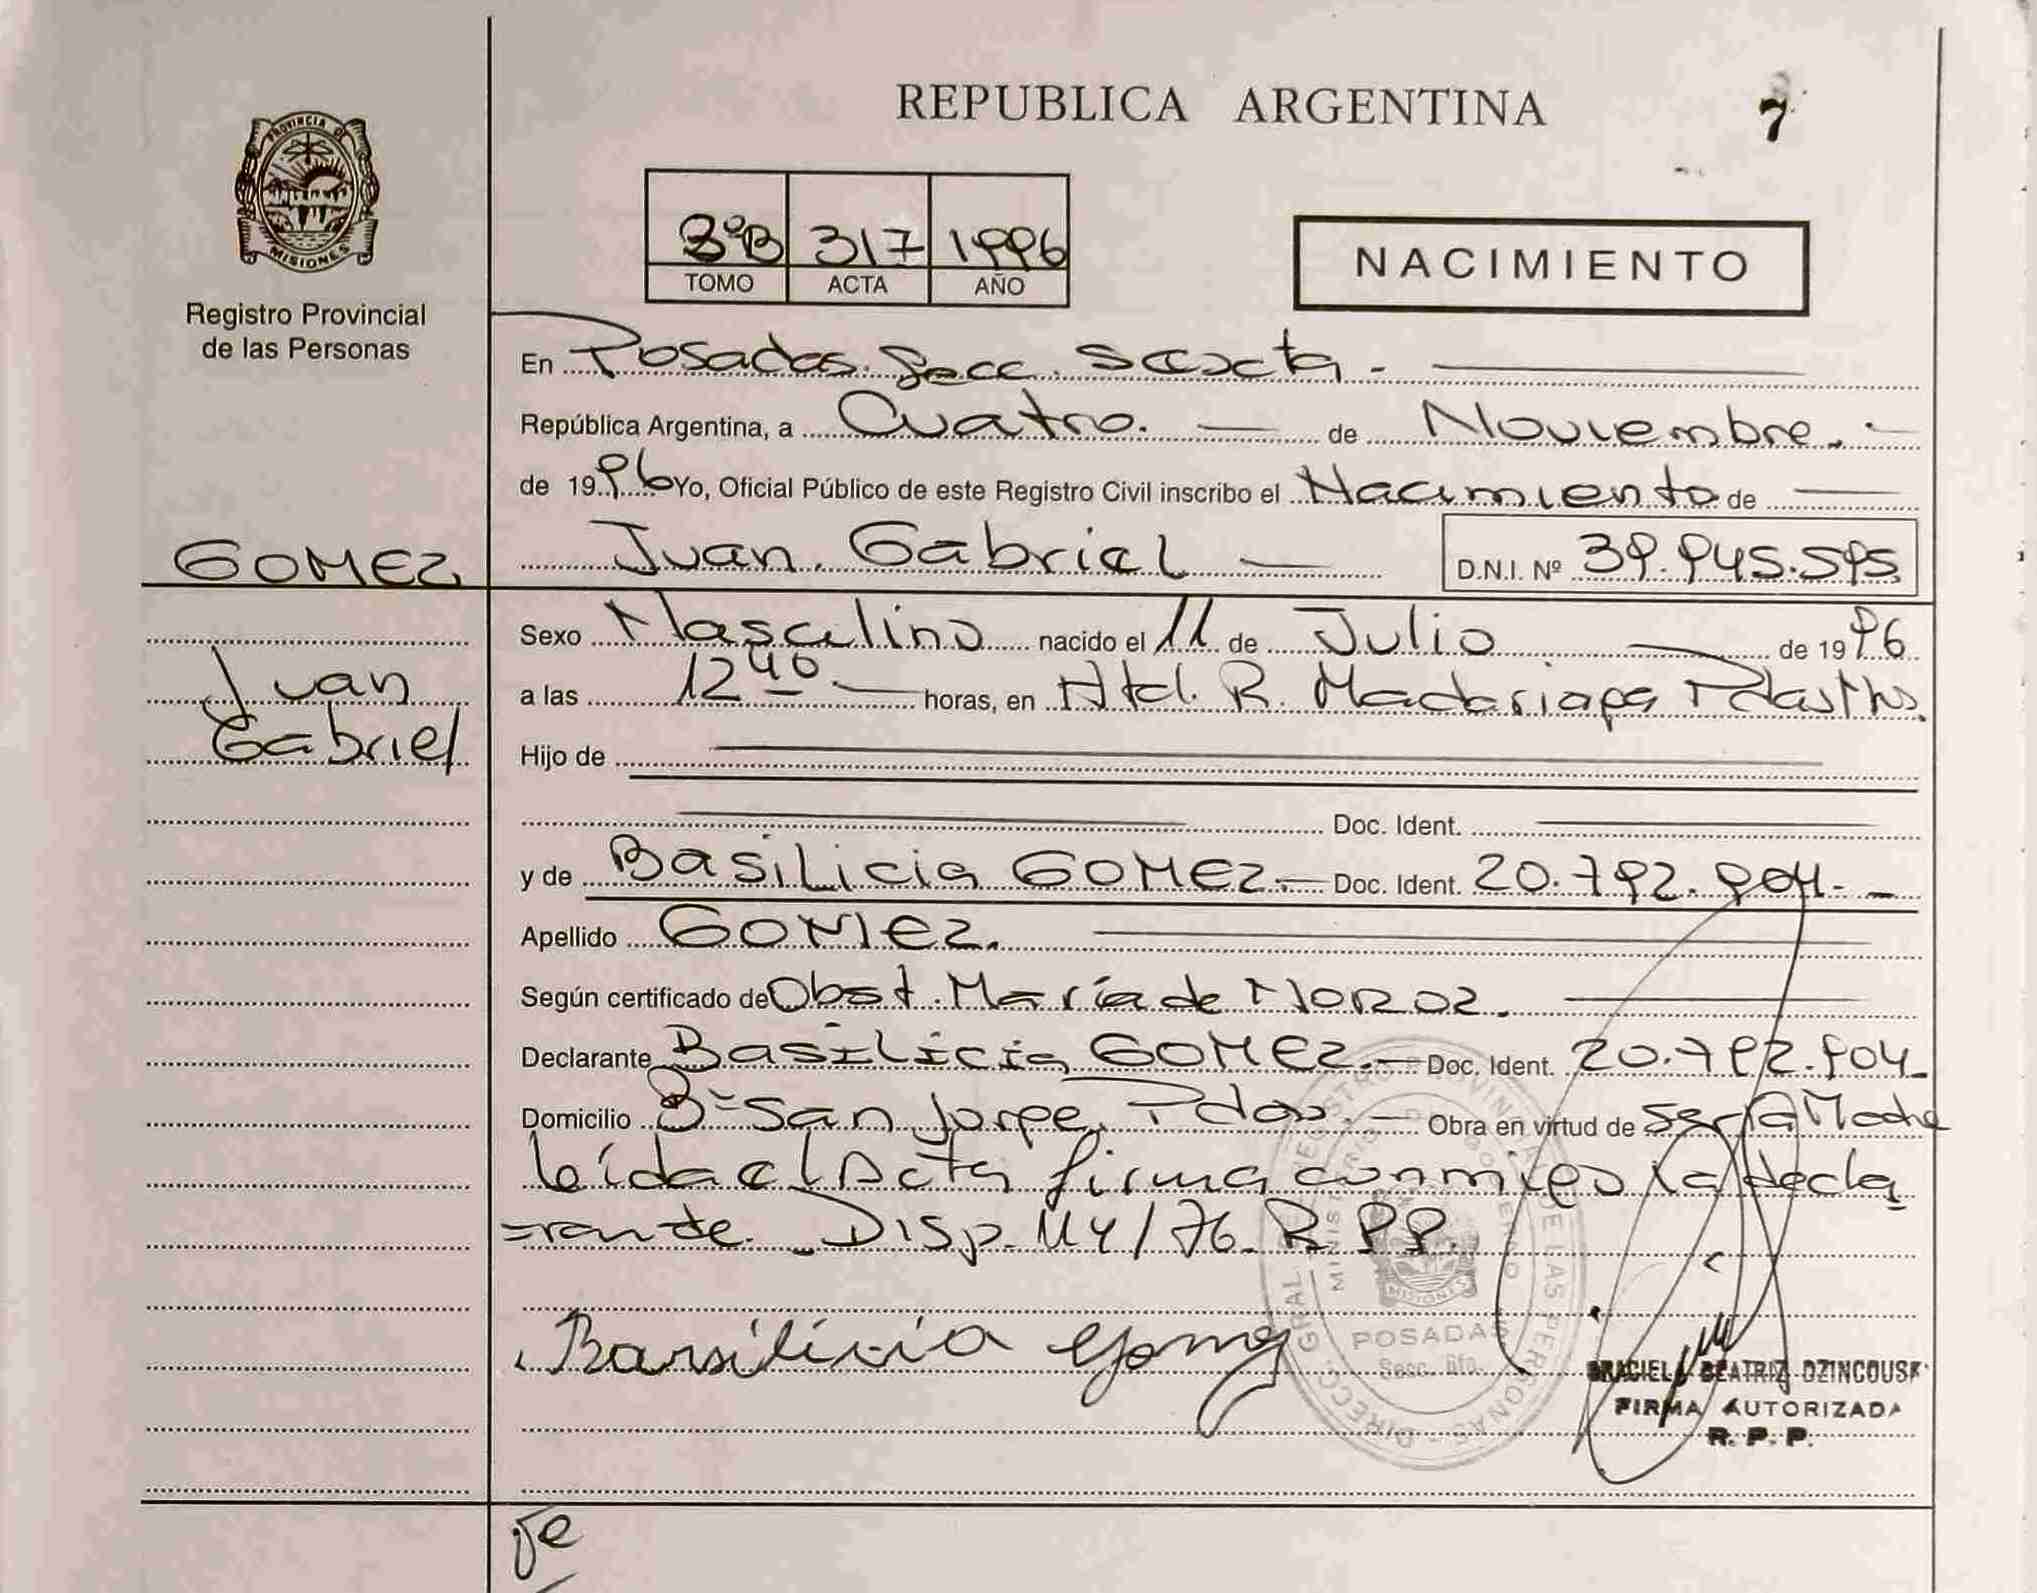 REPUBLICA ARGENTINA
7
PROVINCIA DE
MISIONES
Registro Provincial
de las Personas
3ºB 317 1996
TOMO ACTA AÑO
NACIMIENTO
En Posadas. Secc. Sexta.
República Argentina, a Cuatro. de Noviembre.
de 1996 Yo, Oficial Público de este Registro Civil inscribo el Nacimiento de
GOMEZ
Juan Gabriel
Juan. Gabriel D.N.I. Nº 39.945.595
Sexo Masculino nacido el 11 de Julio de 1996
a las 12 40 horas, en Htal. R. Madariaga Pdas Mns.
Hijo de
Doc. Ident.
y de BASILICIA GOMEZ.- Doc. Ident. 20.792.904.-
Apellido GOMEZ.
Según certificado de Obst. María de Moroz.
Declarante BASILICIA GOMEZ.- Doc. Ident. 20.792.904-
Domicilio Bº San Jorge. Pdas. - Obra en virtud de ser la Madre
leída el Acta firma conmigo la decla
=rante. Disp. 114/76. R.P.P.
Basilicia Gomez
DIRECC. GRAL. DE REGISTRO PROVINCIAL DE LAS PERSONAS
MINISTERIO DE GOBIERNO
MISIONES
POSADAS
Secc. 6ta.
GRACIELA BEATRIZ DZINCOUSK
FIRMA AUTORIZADA
R. P. P.